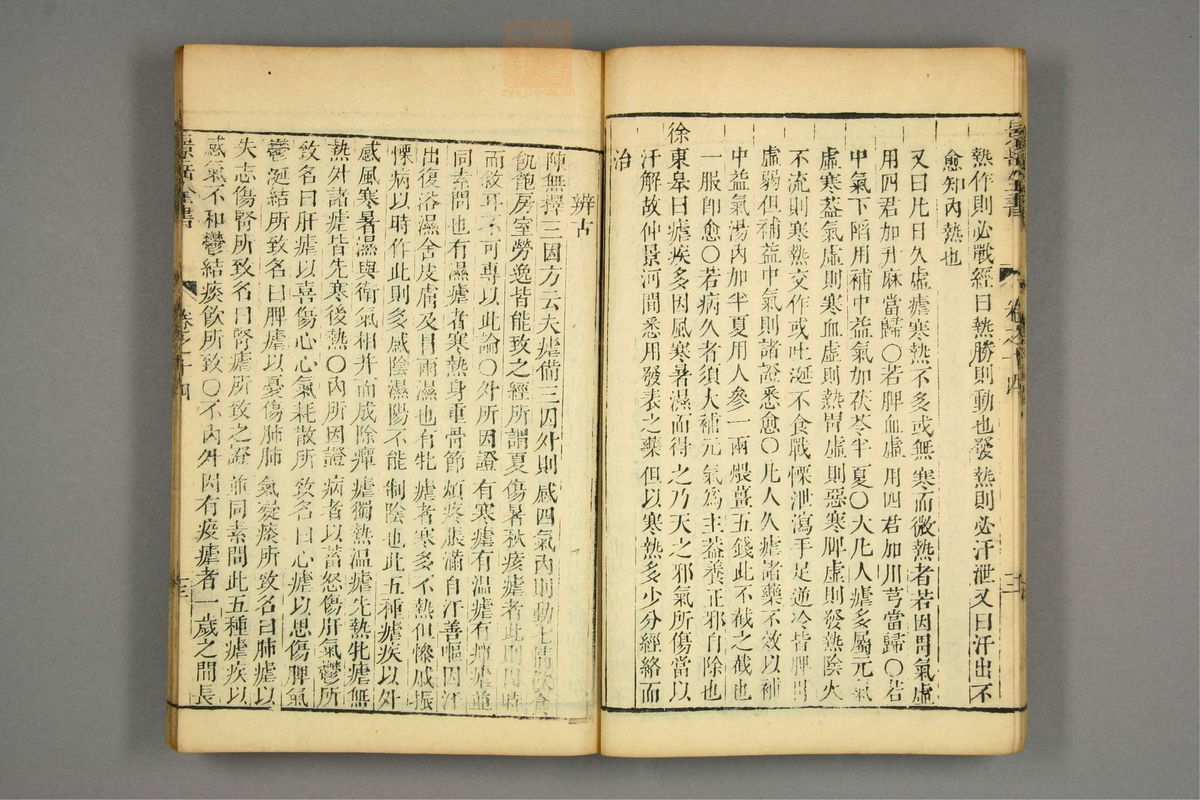 熱作則必戰經曰熱勝則動也發熱則必汗泄又曰汗出不
愈知內熱也
又曰凡日久虛瘧寒熱不多或無寒而微熱者若因胃氣虛
用四君加升麻當歸〇若脾血虛用四君加川芎當歸〇若
中氣下陷用補中益氣加茯苓半夏〇大凡人瘧多屬元氣
虛寒葢氣虛則寒血虛則熱胃虛則惡寒脾虛則發熱陰火
不流則寒熱交作或吐涎不食戰慄泄瀉手足逆冷皆脾胃
虛弱但補益中氣則諸證悉愈〇凡人久瘧諸藥不效以補
中益氣湯內加半夏用人參一兩煨薑五錢此不截之截也
一服卽愈〇若病久者須大補元氣爲主葢養正邪自除也
徐東皋曰瘧疾多因風寒暑濕而得之乃天之邪氣所傷當以
汗解故仲景河間悉用發表之藥但以寒熱多少分經絡而
治
卷之十四
辨古
陳無擇三因方云夫瘧備三因外則感四氣內則動七情飲食
飢飽房室勞逸皆能致之經所謂夏傷暑秋痎瘧者此則以時
而敘耳不可專以此論〇外所因證有寒瘧有温瘧有癉瘧並
同素問也有濕瘧者寒熱身重骨節煩疼脹滿自汗善嘔因汗
出復浴濕舍皮膚及冒雨濕也有牝瘧者寒多不熱但慘戚振
慄病以時作此則多感陰濕陽不能制陰也此五種瘧疾以外
感風寒暑濕與衛氣相并而成除癉瘧獨熱温瘧先熱牝瘧無
熱外諸瘧皆先寒後熱〇內所因證病者以蓄怒傷肝氣鬱所
致名曰肝瘧以喜傷心心氣耗散所致名曰心瘧以思傷脾氣
鬱涎結所致名曰脾瘧以憂傷肺肺氣凝痰所致名曰肺瘧以
失志傷腎所致名曰腎瘧所致之證並同素問此五種瘧疾以
感氣不和鬱結痰飲所致〇不內外因有疫瘧者一歲之間長
景岳全書
卷之十四
十三